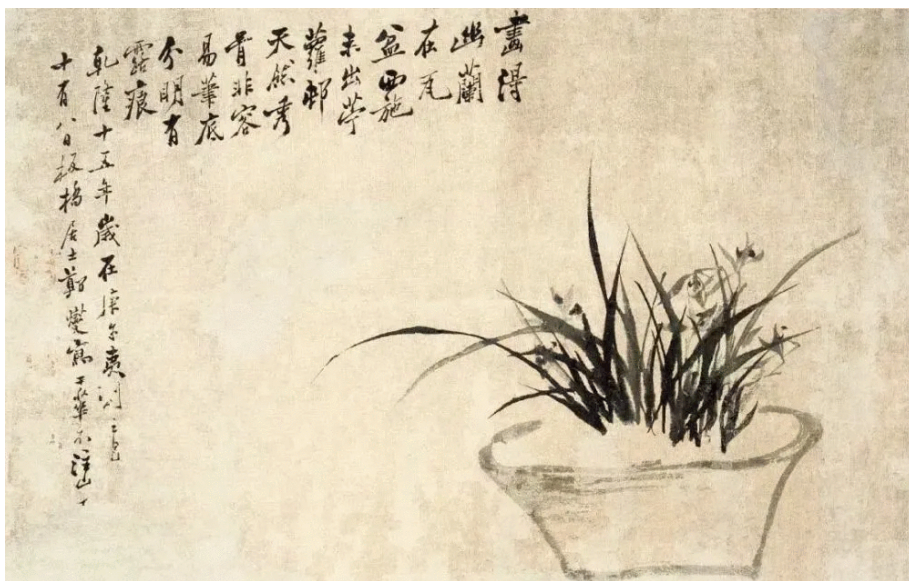 畫得
幽蘭
在瓦
盆西施
未出苧
蘿邨
天然秀
骨非容
易筆底
分明有
露痕
乾隆十五年歲在庚午夷則
十有八日板橋居士鄭燮寫于華不注山